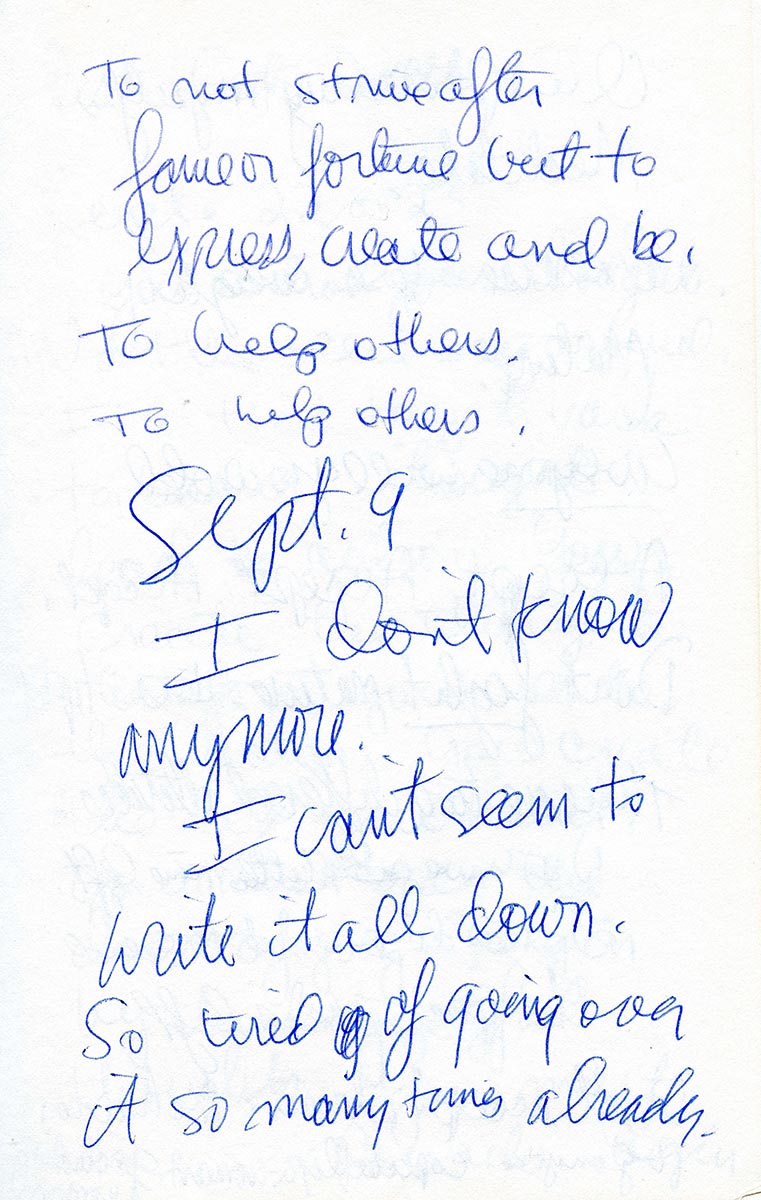 To not strive after
fame or fortune but to
express, create and be.
To help others.
To help others.
Sept. 9
I don't know
anymore.
I can't seem to
write it all down.
So tired of going over
it so many times already.